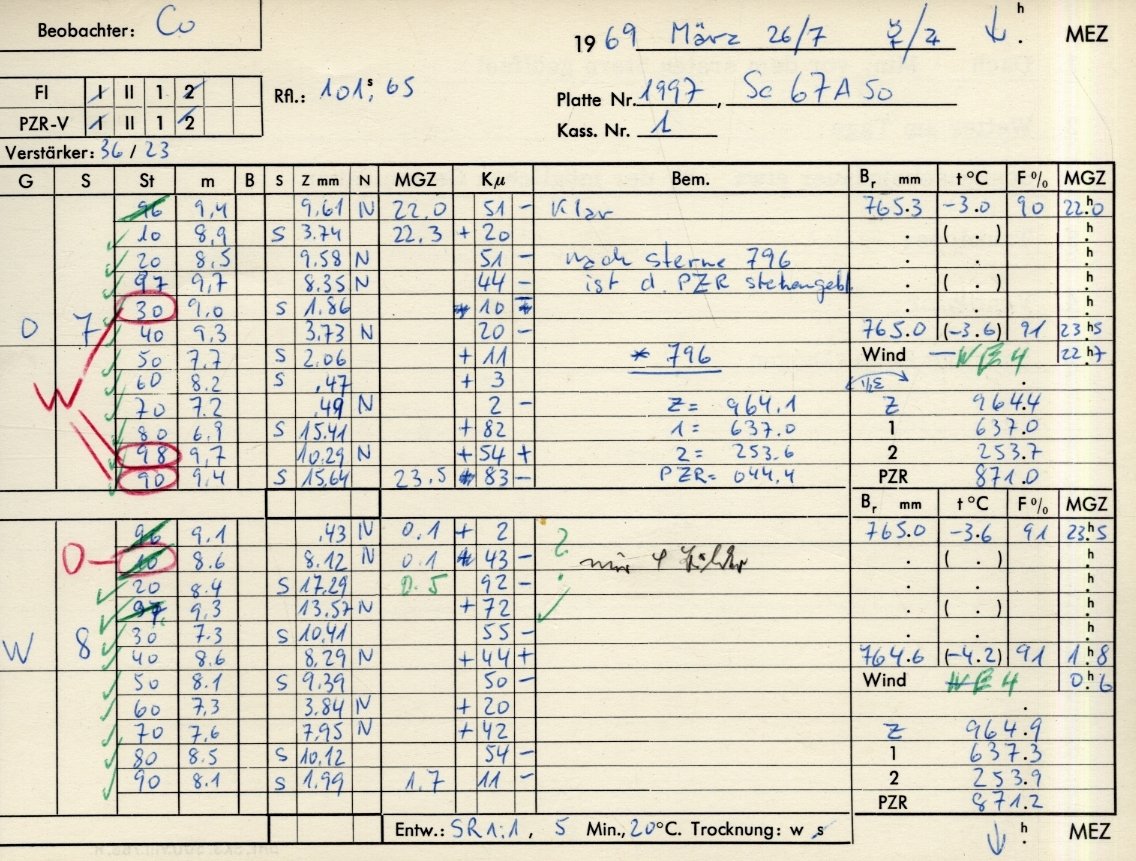 Beobachter: Co
1969 März 26/7 h MEZ
FI I II 1 2
Rfl.: 101s,65
Platte Nr. 1997, Sc 67A50
PZR-V I II 1 2
Kass. Nr. 1
Verstärker: 36 / 23
G S St m B S Z mm N MGZ Kμ Bem. Br mm t °C F% MGZ
96 9,4 9,61 N 22.0 51 - Klar 765.3 -3.0 90 22.h0
10 8,9 S 3.74 22.3 + 20 . ( . ) . h
20 8,5 9.58 N 51 - nach Sterne 796 . . h
97 9,7 8.35 N 44 - ist d. PZR stehengebl . ( . ) . h
30 9,0 S 1,86 10 . . h
O 7 40 9,3 3,73 N 20 - 765.0 (-3.6) 91 23.h5
50 7.7 S 2,06 + 11 * 796 Wind WE 4 22 h7
60 8.2 S ,47 + 3
70 7.2 ,49 N 2 - Z = 964.1 Z 964.4
80 6.9 S 15.41 + 82 1 = 637.0 1 637.0
W 98 9,7 10,29 N + 54 + 2 = 253.6 2 253.7
90 9,4 S 15,64 23.5 83 - PZR = 044.4 PZR 871.0
Br mm t °C F% MGZ
96 9.1 ,43 N 0.1 + 2 765.0 -3.6 91 23.h5
O 10 8.6 8.12 N 0.1 43 - ? nur 4 Bilder . ( . ) . h
20 8.4 S 17,29 0.5 92 - . . h
97 9,3 13.57 N + 72 . ( . ) . h
30 7.3 S 10,41 55 - . . h
W 8 40 8.6 8,29 N + 44 + 764.6 (-4.2) 91 1.h8
50 8.1 S 9.39 50 - Wind WE 4 0.h6
60 7,3 3.84 N + 20
70 7,6 7,95 N + 42 Z 964.9
80 8.5 S 10,12 54 - 1 637.3
90 8.1 S 1,99 1.7 11 - 2 253.9
PZR 871.2
Entw.: SR 1:1, 5 Min., 20°C. Trocknung: w s h MEZ